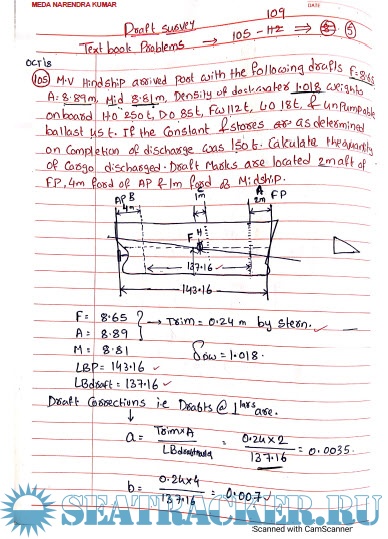 MEDA NARENDRA KUMAR
DATE
109
Draft survey
Text book Problems → 105 - 112 → 8 5
OCT18
105) M.V Hindship arrived Poot with the following drafts F=8.65
A: 8.89m, Mid 8.81m, Density of dockwater 1.018 weights
onboard HO 250t, DO 85t, FW 112t, LO 18t, & unPumpable
ballast 45t. If the Constant & stores as determined
on Completion of discharge was 150t. Calculate the quantity
of Cargo discharged. Draft Marks are located 2m aft of
FP, 4m ford of AP & 1m ford of Midship.
AP B
4m
1m
A
2m
FP
F
H
137.16
143.16
F = 8.65
A = 8.89
M = 8.81
→ Trim = 0.24 m by stern.
LBP = 143.16
δdw = 1.018.
LBdraft = 137.16
Draft Corrections i.e Drafts @ ⊥lars are.
a = Trim x A / LBdraft = 0.24 x 2 / 137.16 = 0.0035.
b = 0.24 x 4 / 137.16 = 0.007
SEATRACKER.RU
Scanned with CamScanner